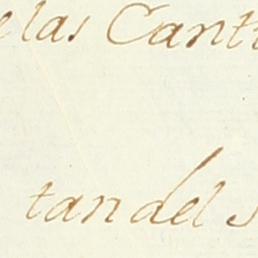 elas Cant
tandel S